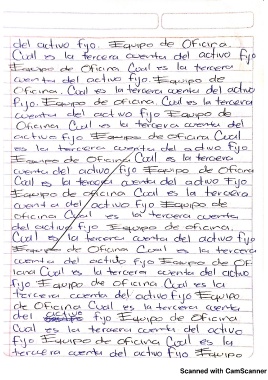 del activo fijo. Equipo de Oficina.
Cual es la tercera cuenta del activo fijo
Equipo de Oficina Cual es la tercera
cuenta del activo fijo. Equipo de
Oficina. Cual es la tercera cuenta del activo
fijo. Equipo de oficina Cual es la tercera
cuenta del activo fijo Equipo de
Oficina Cual es la tercera cuenta del
activo fijo Equipo de oficina Cual
es la tercera cuenta del activo fijo
Equipo de Oficina Cual es la tercera
cuenta del activo fijo Equipo de Oficina
Cual es la tercera cuenta del activo Fijo
Equipo de oficina Cual es la tercera
cuenta del activo fijo Equipo de
Oficina Cual es la tercera cuenta
del activo fijo. Equipo de oficina.
Cual es la tercera cuenta del activo fijo
Equipo de Oficina Cual es la tercera
cuenta del activo fijo Equipo de Of
icina Cual es la tercera cuenta del activo
fijo Equipo de Oficina Cual es la
tercera cuenta del activo fijo Equipo
de Oficina Cual es la tercera cuenta
del activo fijo Equipo de Oficina
Cual es la tercera cuenta del activo
fijo Equipo de Oficina. Cual es la
tercera cuenta del activo fijo Equipo
Scanned with CamScanner